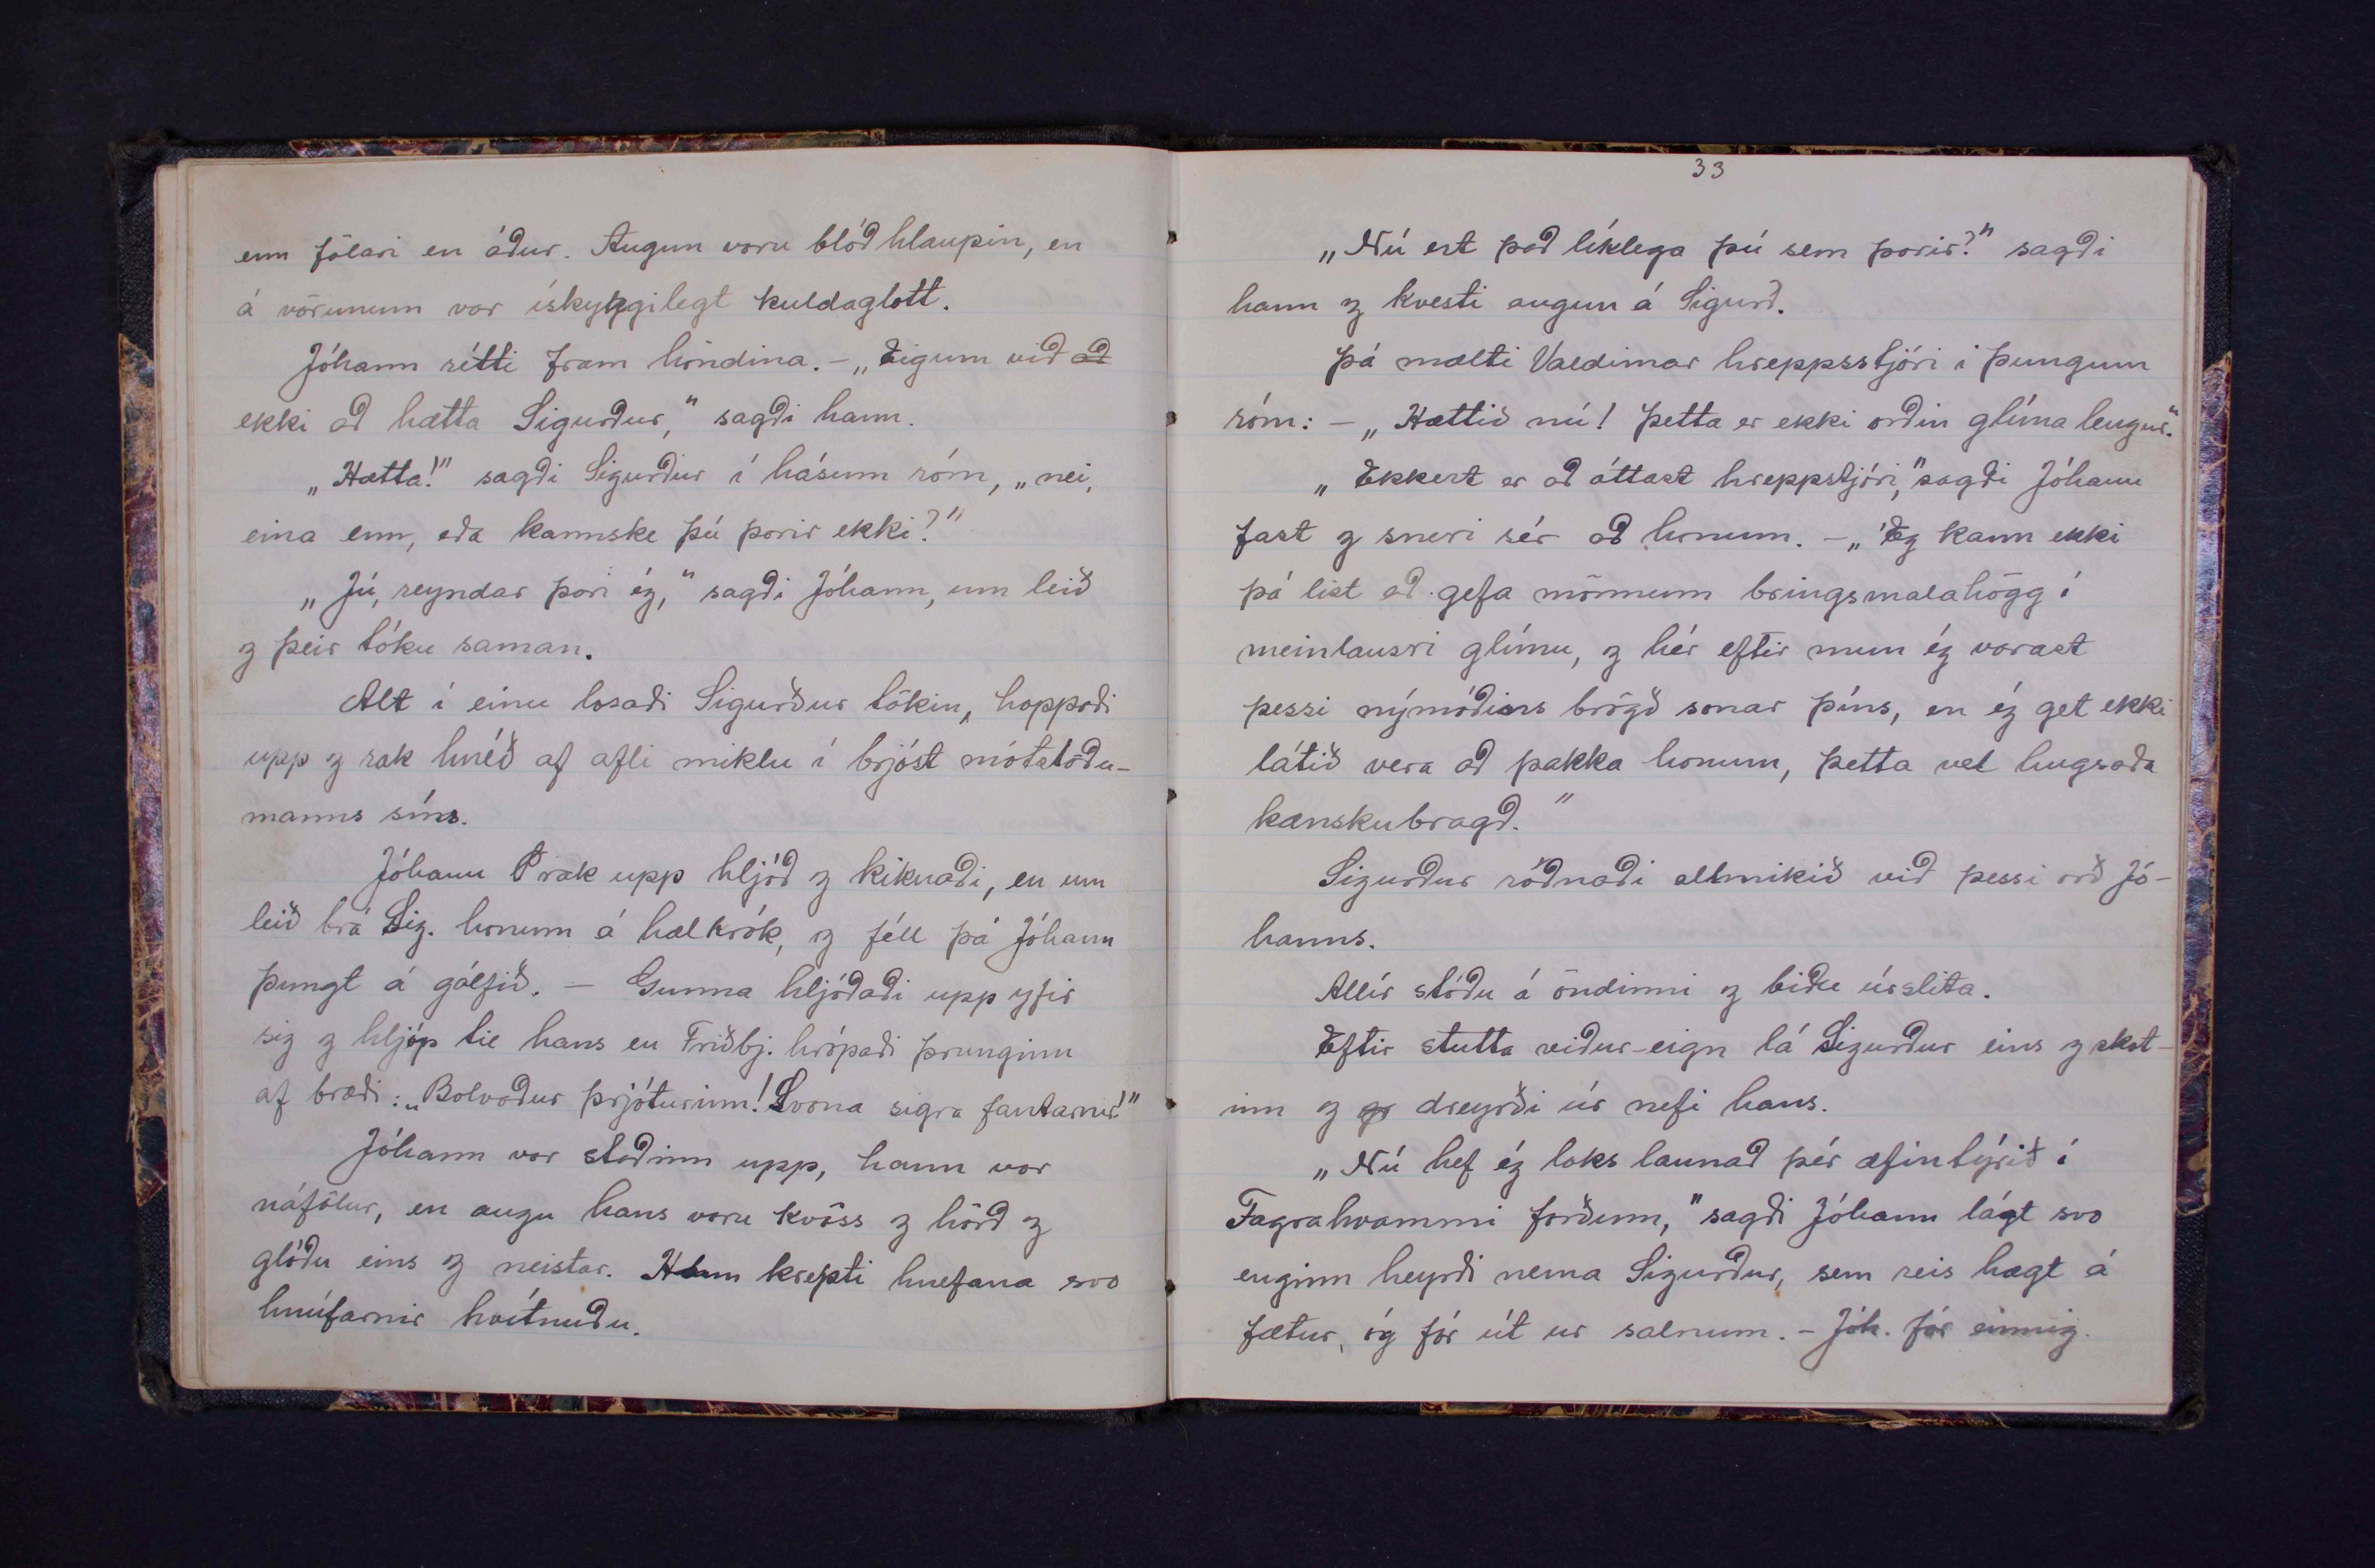 enn fölari en áður. Augun voru blóðhlaupin, en
á vörunum var ískyggilegt kuldaglott.
Jóhann rétti fram höndina. - „Eigum við að
ekki að hætta Sigurður," sagði hann.
„Hætta!" sagði Sigurður í hásum róm, „nei,
eina enn, eða kannske þú þorir ekki?"
„Jú, reyndar þori ég," sagði Jóhann, um leið
og þeir tóku saman.
Alt í einu losaði Sigurður tökin, hoppaði
upp og rak hnéð af afli miklu í brjóst mótstöðu-
manns síns.
Jóhann rak upp hljóð og kiknaði, en um
leið brá Sig. honum á hælkrók, og féll þá Jóhann
þungt á gólfið. - Gunna hljóðaði upp yfir
sig og hljóp til hans en Friðbj. hrópaði þrunginn
af bræði: „Bolvaður þrjóturinn! Svona sigra fantarnir!"
Jóhann var staðinn upp, hann var
náfölur, en augu hans voru kvöss og hörð og
glóðu eins og neistar. Hann krepti hnefana svo
hnúfarnir hvítnuðu.
33
„Nú ert það líklega þú sem þorir?" sagði
hann og kvesti augun á Sigurð.
Þá mælti Valdimar hreppsstjóri í þungum
róm: - „Hættið nú! Þetta er ekki orðin glíma lengur."
„Ekkert er að óttast hreppstjóri," sagði Jóhann
fast og sneri sér að honum. - „Ég kann ekki
þá list að gefa mönnum bringsmalahögg í
meinlausri glímu, og hér eftir mun ég varast
þessi nýmóðins brögð sonar þíns, en ég get ekki
látið vera að þakka honum, þetta vel hugsaða
kænskubragð."
Sigurður róðnaði allmikið við þessi orð Jó-
hanns.
Allir stóðu á öndinni og biðu úrslita.
Eftir stutta viður-eign lá Sigurður eins og skot-
inn og dreyrði úr nefi hans.
„Nú hef ég loks launað þér æfintýrið í
Fagrahvammi forðum," sagði Jóhann lágt svo
enginn heyrði nema Sigurður, sem reis hægt á
fætur, og fór út úr salnum. - Jóh. fór einnig.